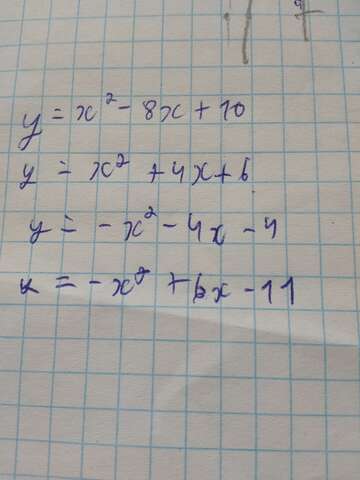 y = x² - 8x + 10
y = x² + 4x + 6
y = -x² - 4x - 4
y = -x² + 6x - 11